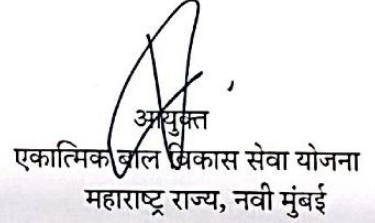 आयुक्त
एकात्मिक बाल विकास सेवा योजना
महाराष्ट्र राज्य, नवी मुंबई